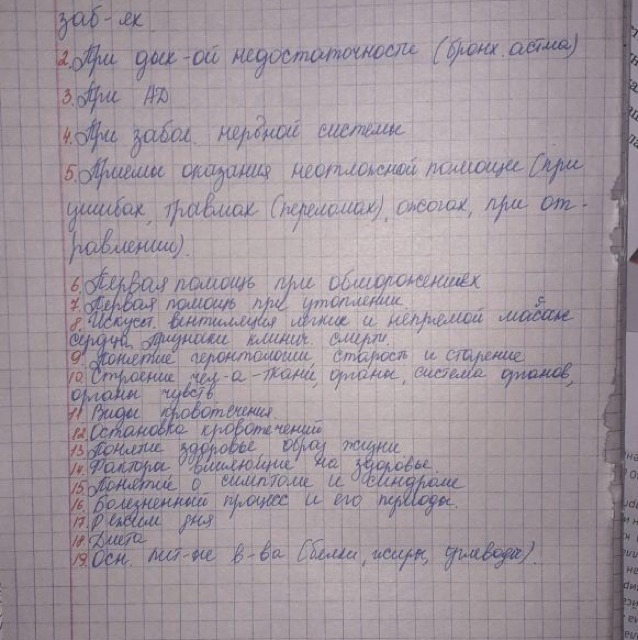 заб-ях.
2. При дых-ой недостаточности (бронх. астма)
3. При АД
4. При забол. нервной системы
5. Приемы оказания неотложной помощи (при
ушибах, травмах (переломах), ожогах, при от-
равлении).
6. Первая помощь при обморожениях
7. Первая помощь при утоплении.
8. Искуст. вентиляция легких и непрямой массаж
сердца. Признаки клинич. смерти.
9. Понятие геронтологии, старость и старение
10. Строение чел-а -ткани, органы, система органов,
органы чувств
11. Виды кровотечения
12. Остановка кровотечений
13. Понятие здоровье образ жизни
14. Фактора влияющие на здоровье.
15. Понятие о симптоме и синдроме
16. Болезненный процесс и его периоды.
17. Режим дня
18. Диета
19. Осн. пит-ые в-ва (белки, жиры, углеводы).